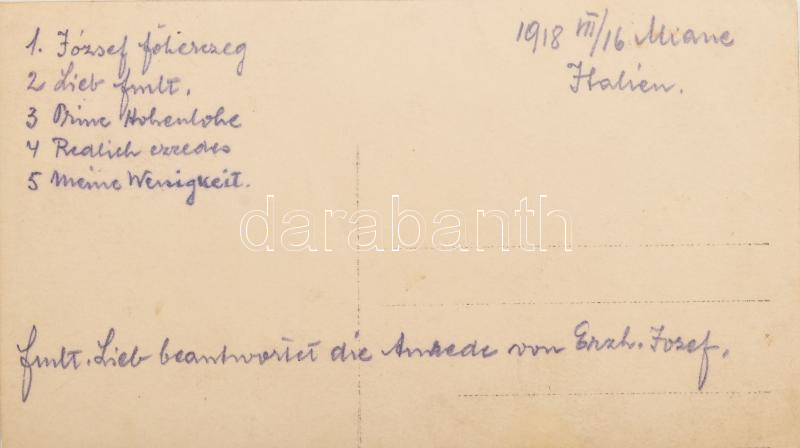 1. József főherzeg
2 Lieb fmlt.
3 Prinz Hohenlohe
4 Redlich ezredes
5 Meine Wenigkeit.
1918 VII/16 Miane
Italien.
darabanth
fmlt. Lieb beantwortet die Anrede von Erzh. Josef.